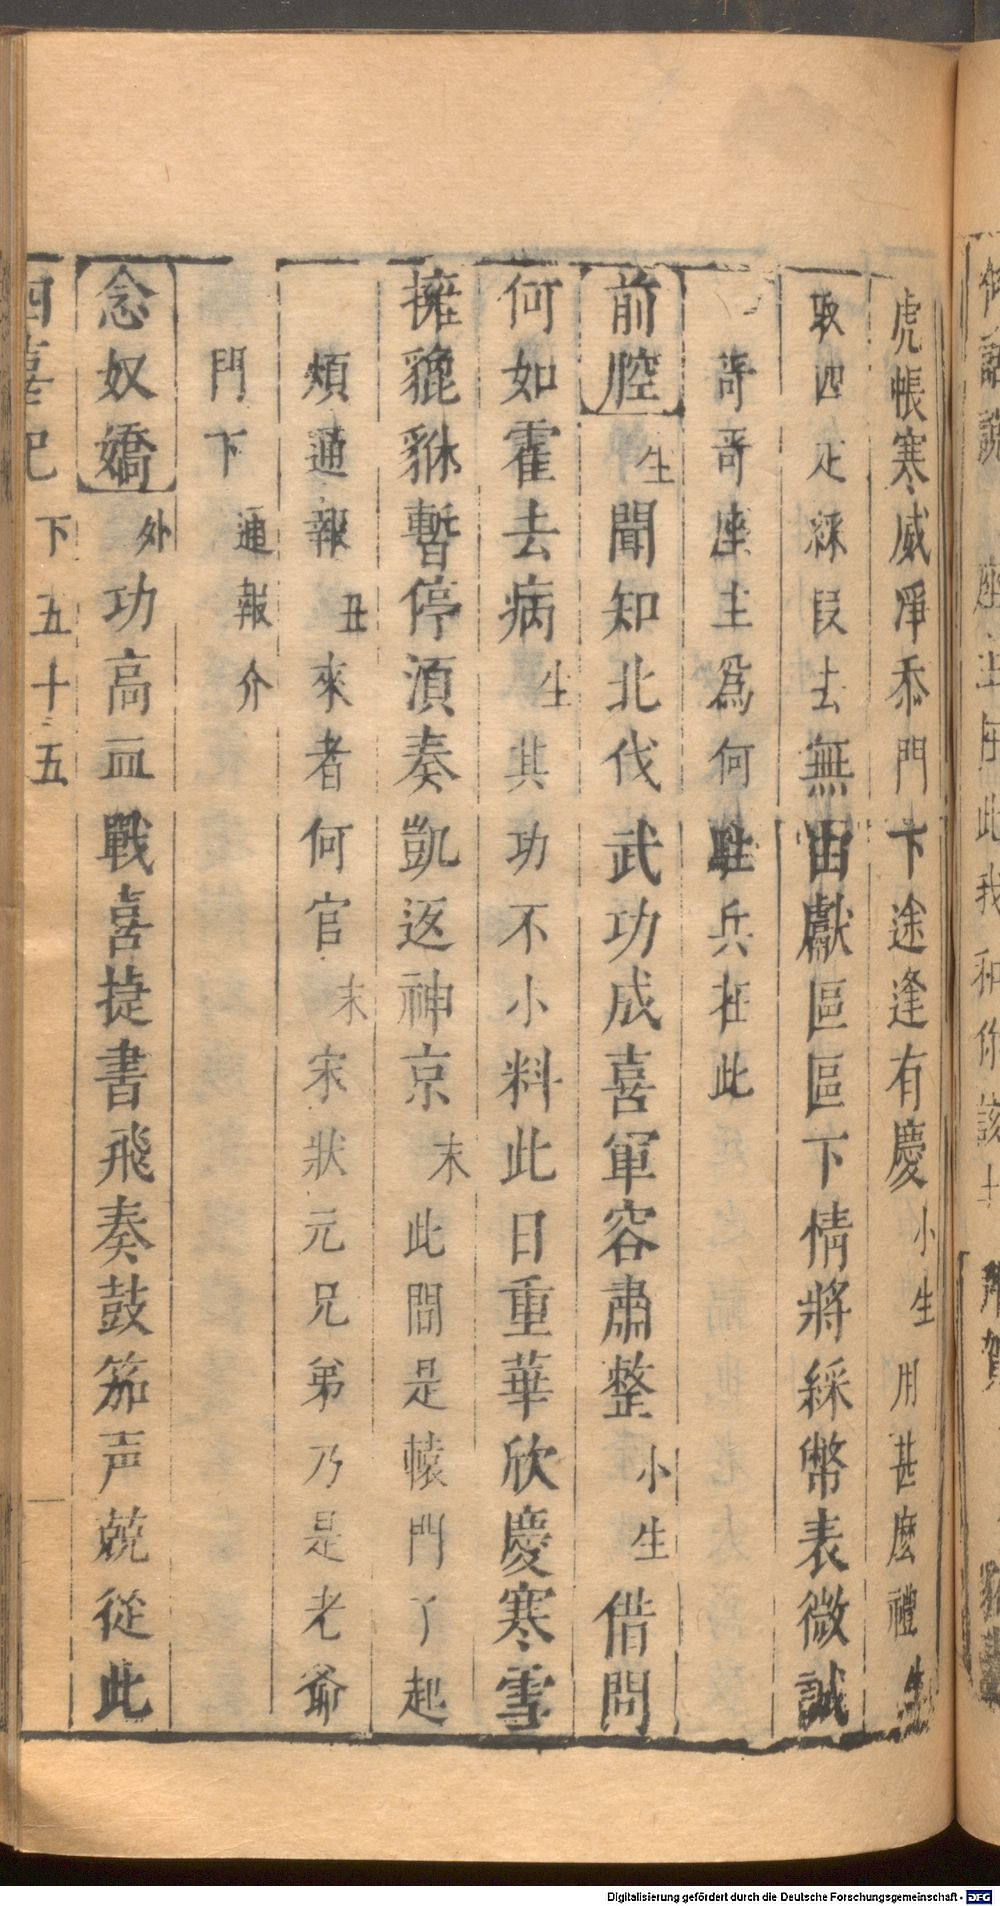 虎帳寒威凈忝門下途逢有慶小生用甚麼禮生
取四疋綵段去無由獻區區下情將綵幣表微誠
哥哥座主爲何駐兵在此
前腔生聞知北伐武功成喜軍容肅整小生借問
何如霍去病生其功不小料此日重華欣慶寒雪
擁貔貅暫停須奏凱返神京末此間是轅門了起
煩通報丑來者何官末宋狀元兄弟乃是老爺
門下通報介
念奴嬌外功高血戰喜捷書飛奏鼓笳声兢從此
四喜記 下 五十五
座主在此我和你該上
Digitalisierung gefördert durch die Deutsche Forschungsgemeinschaft - DFG